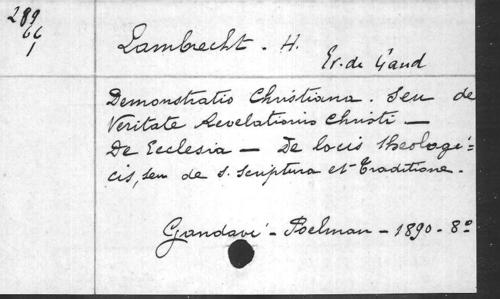 289
66
1
Lambrecht. H.
Ev. de Gand
Demonstratio Christiana. Seu de
Veritate Revelationis Christi —
De Ecclesia — De locis theologi=
cis, seu de S. Scriptura et Traditione.
Gandavi - Poelman - 1890 - 8º